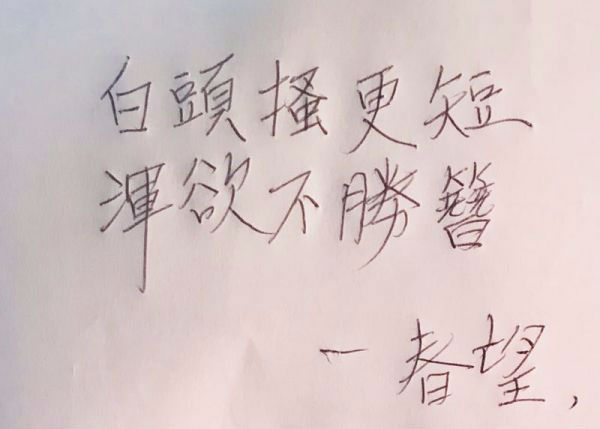 白頭搔更短
渾欲不勝簪
—春望,